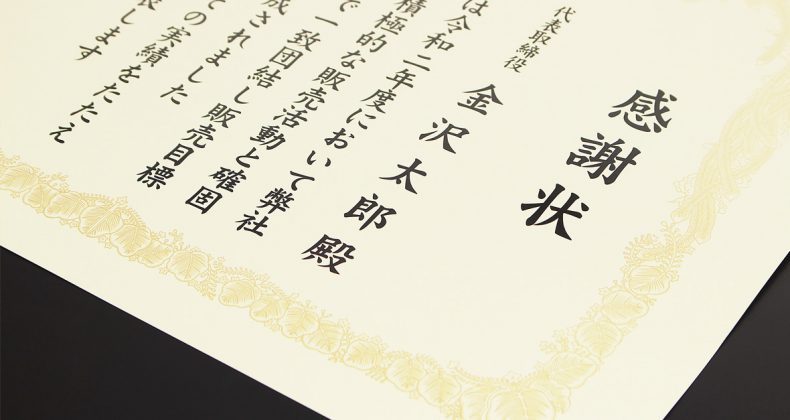 感謝状
代表取締役
金沢太郎殿
は令和二年度において弊社
積極的な販売活動と確固
で一致団結し販売目標
成されました
ての実績をたたえ
します